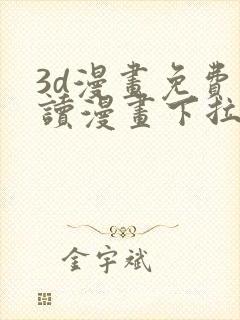 3d漫畫免費
讀漫畫下拉
金宇斌